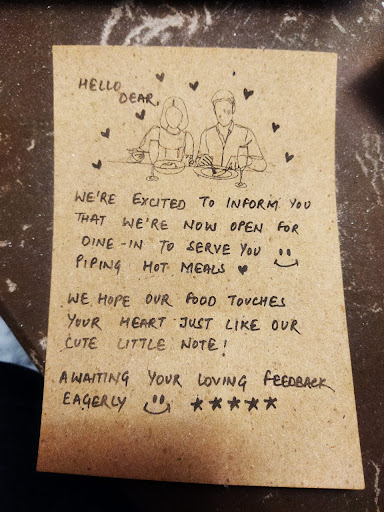 HELLO
DEAR,
WE'RE EXCITED TO INFORM YOU
THAT WE'RE NOW OPEN FOR
DINE-IN TO SERVE YOU
PIPING HOT MEALS ♥
WE HOPE OUR FOOD TOUCHES
YOUR HEART JUST LIKE OUR
CUTE LITTLE NOTE!
AWAITING YOUR LOVING FEEDBACK
EAGERLY ☺ ★★★★★